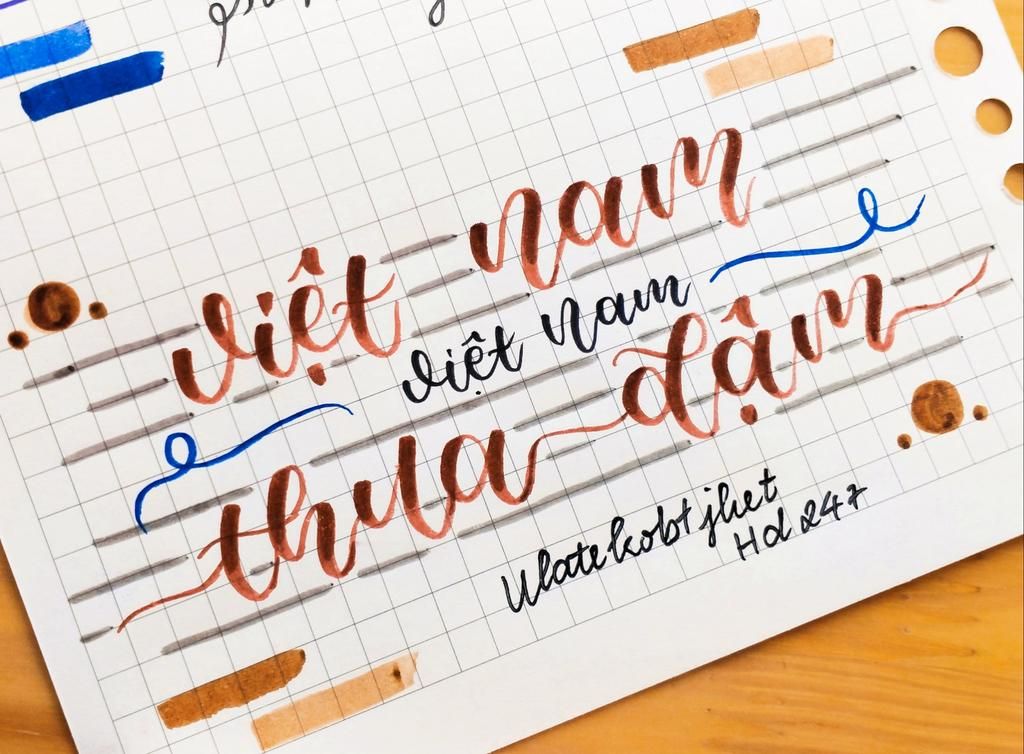 việt nam
việt nam
thua đậm
Ulatekobtjhet
Hd 247